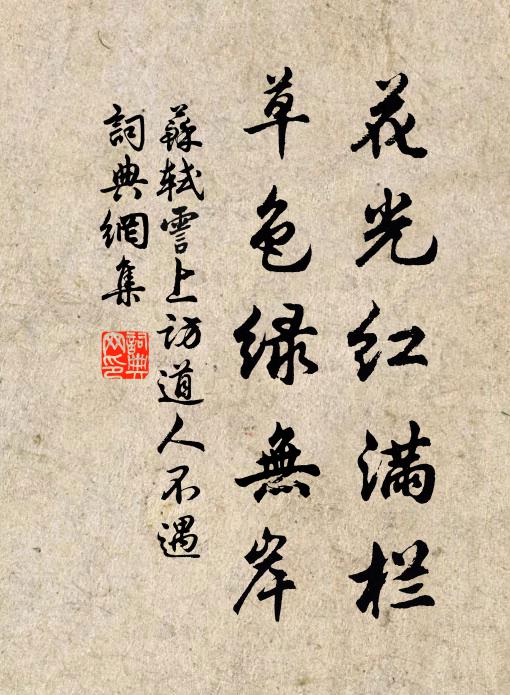 花光红满栏
草色绿無岸
蘇轼雲上訪道人不遇
詞典網集
詞典网印